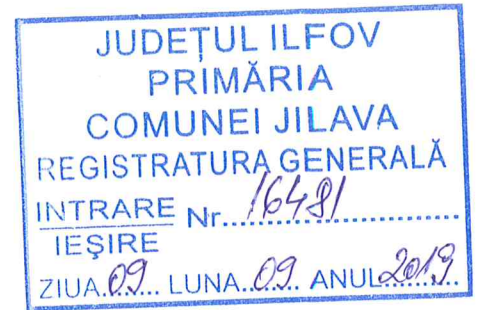 JUDEȚUL ILFOV
PRIMĂRIA
COMUNEI JILAVA
REGISTRATURA GENERALĂ
INTRARE Nr....16481..............
IEȘIRE
ZIUA.09... LUNA..09. ANUL.2019..